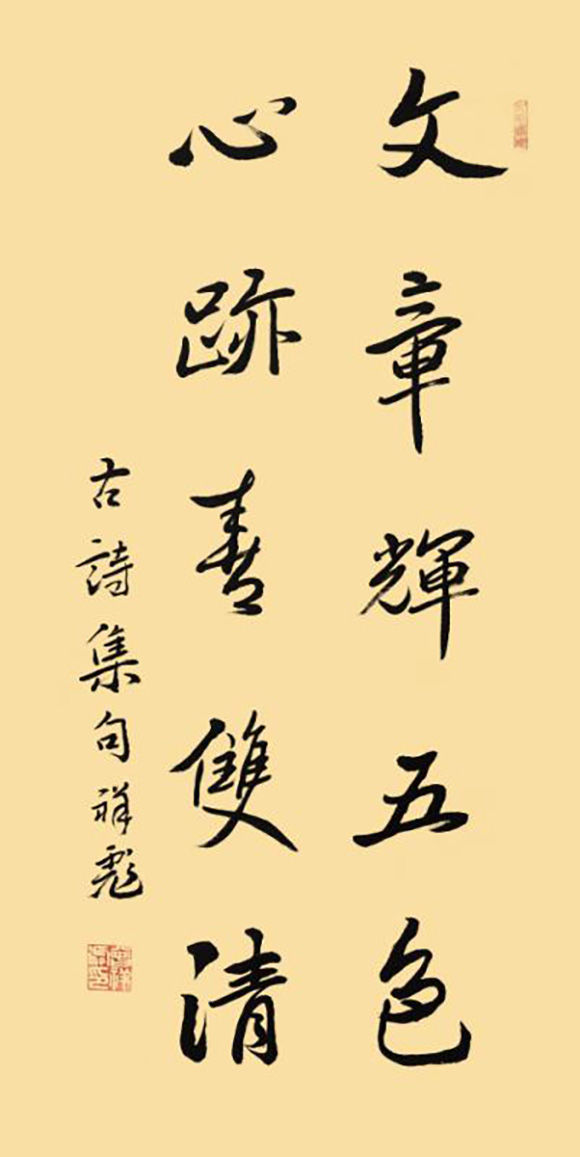 文章輝五色
心跡喜雙清
古詩集句祥彪